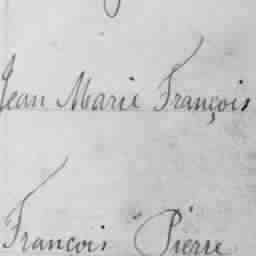 Jean Marie François
François Pierre